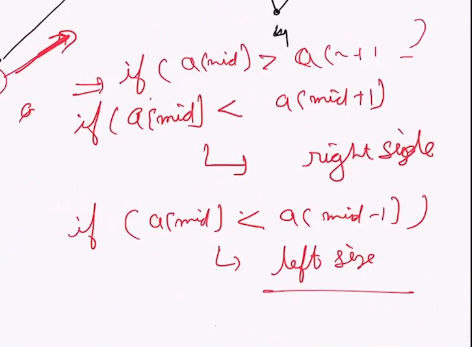 ⇒ if ( a(mid) > a(m+1 ?
if ( a[mid] < a(mid+1)
↳ right side
if ( a(mid] < a( mid-1] )
↳ left size